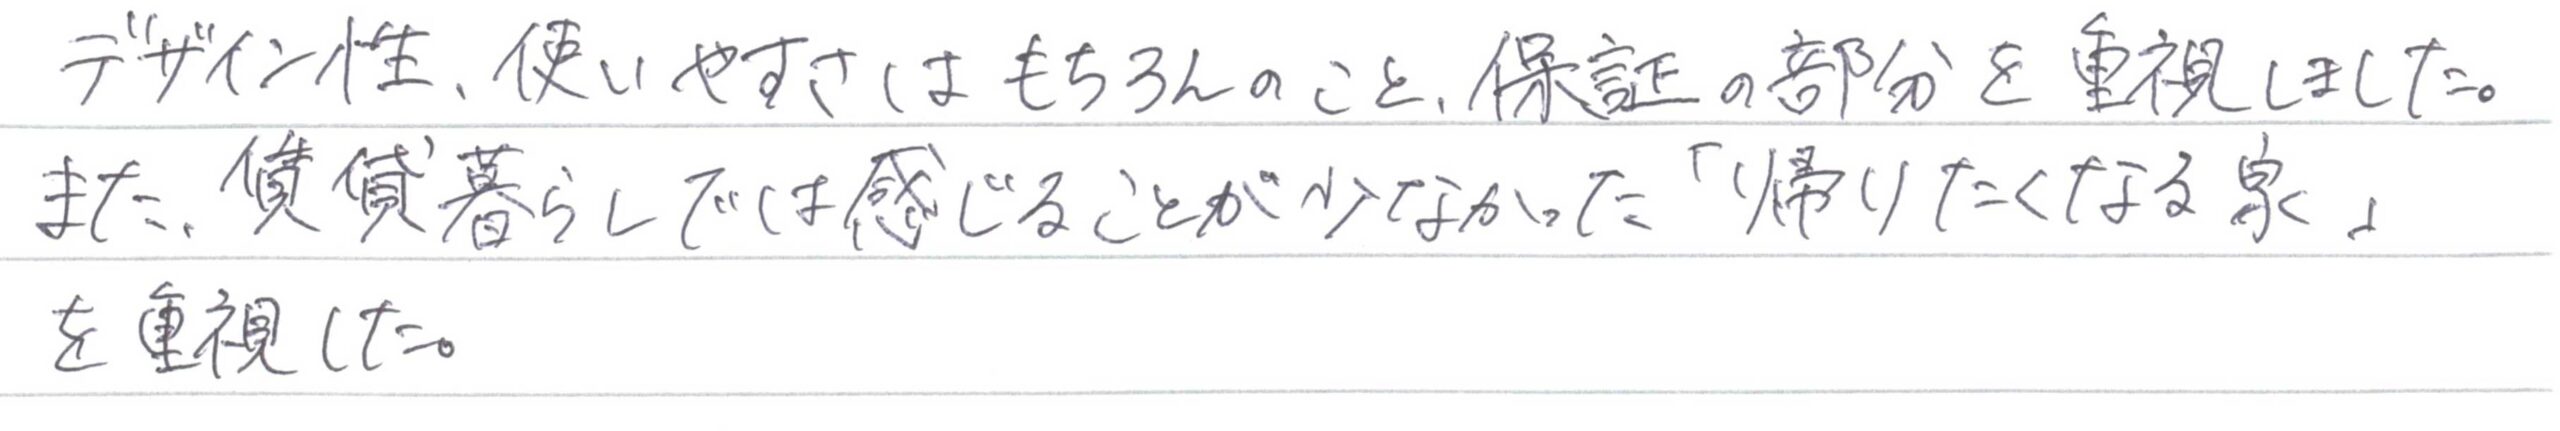 デザイン性、使いやすさはもちろんのこと、保証の部分を重視しました。
また、賃貸暮らしでは感じることが少なかった「帰りたくなる家」
を重視した。